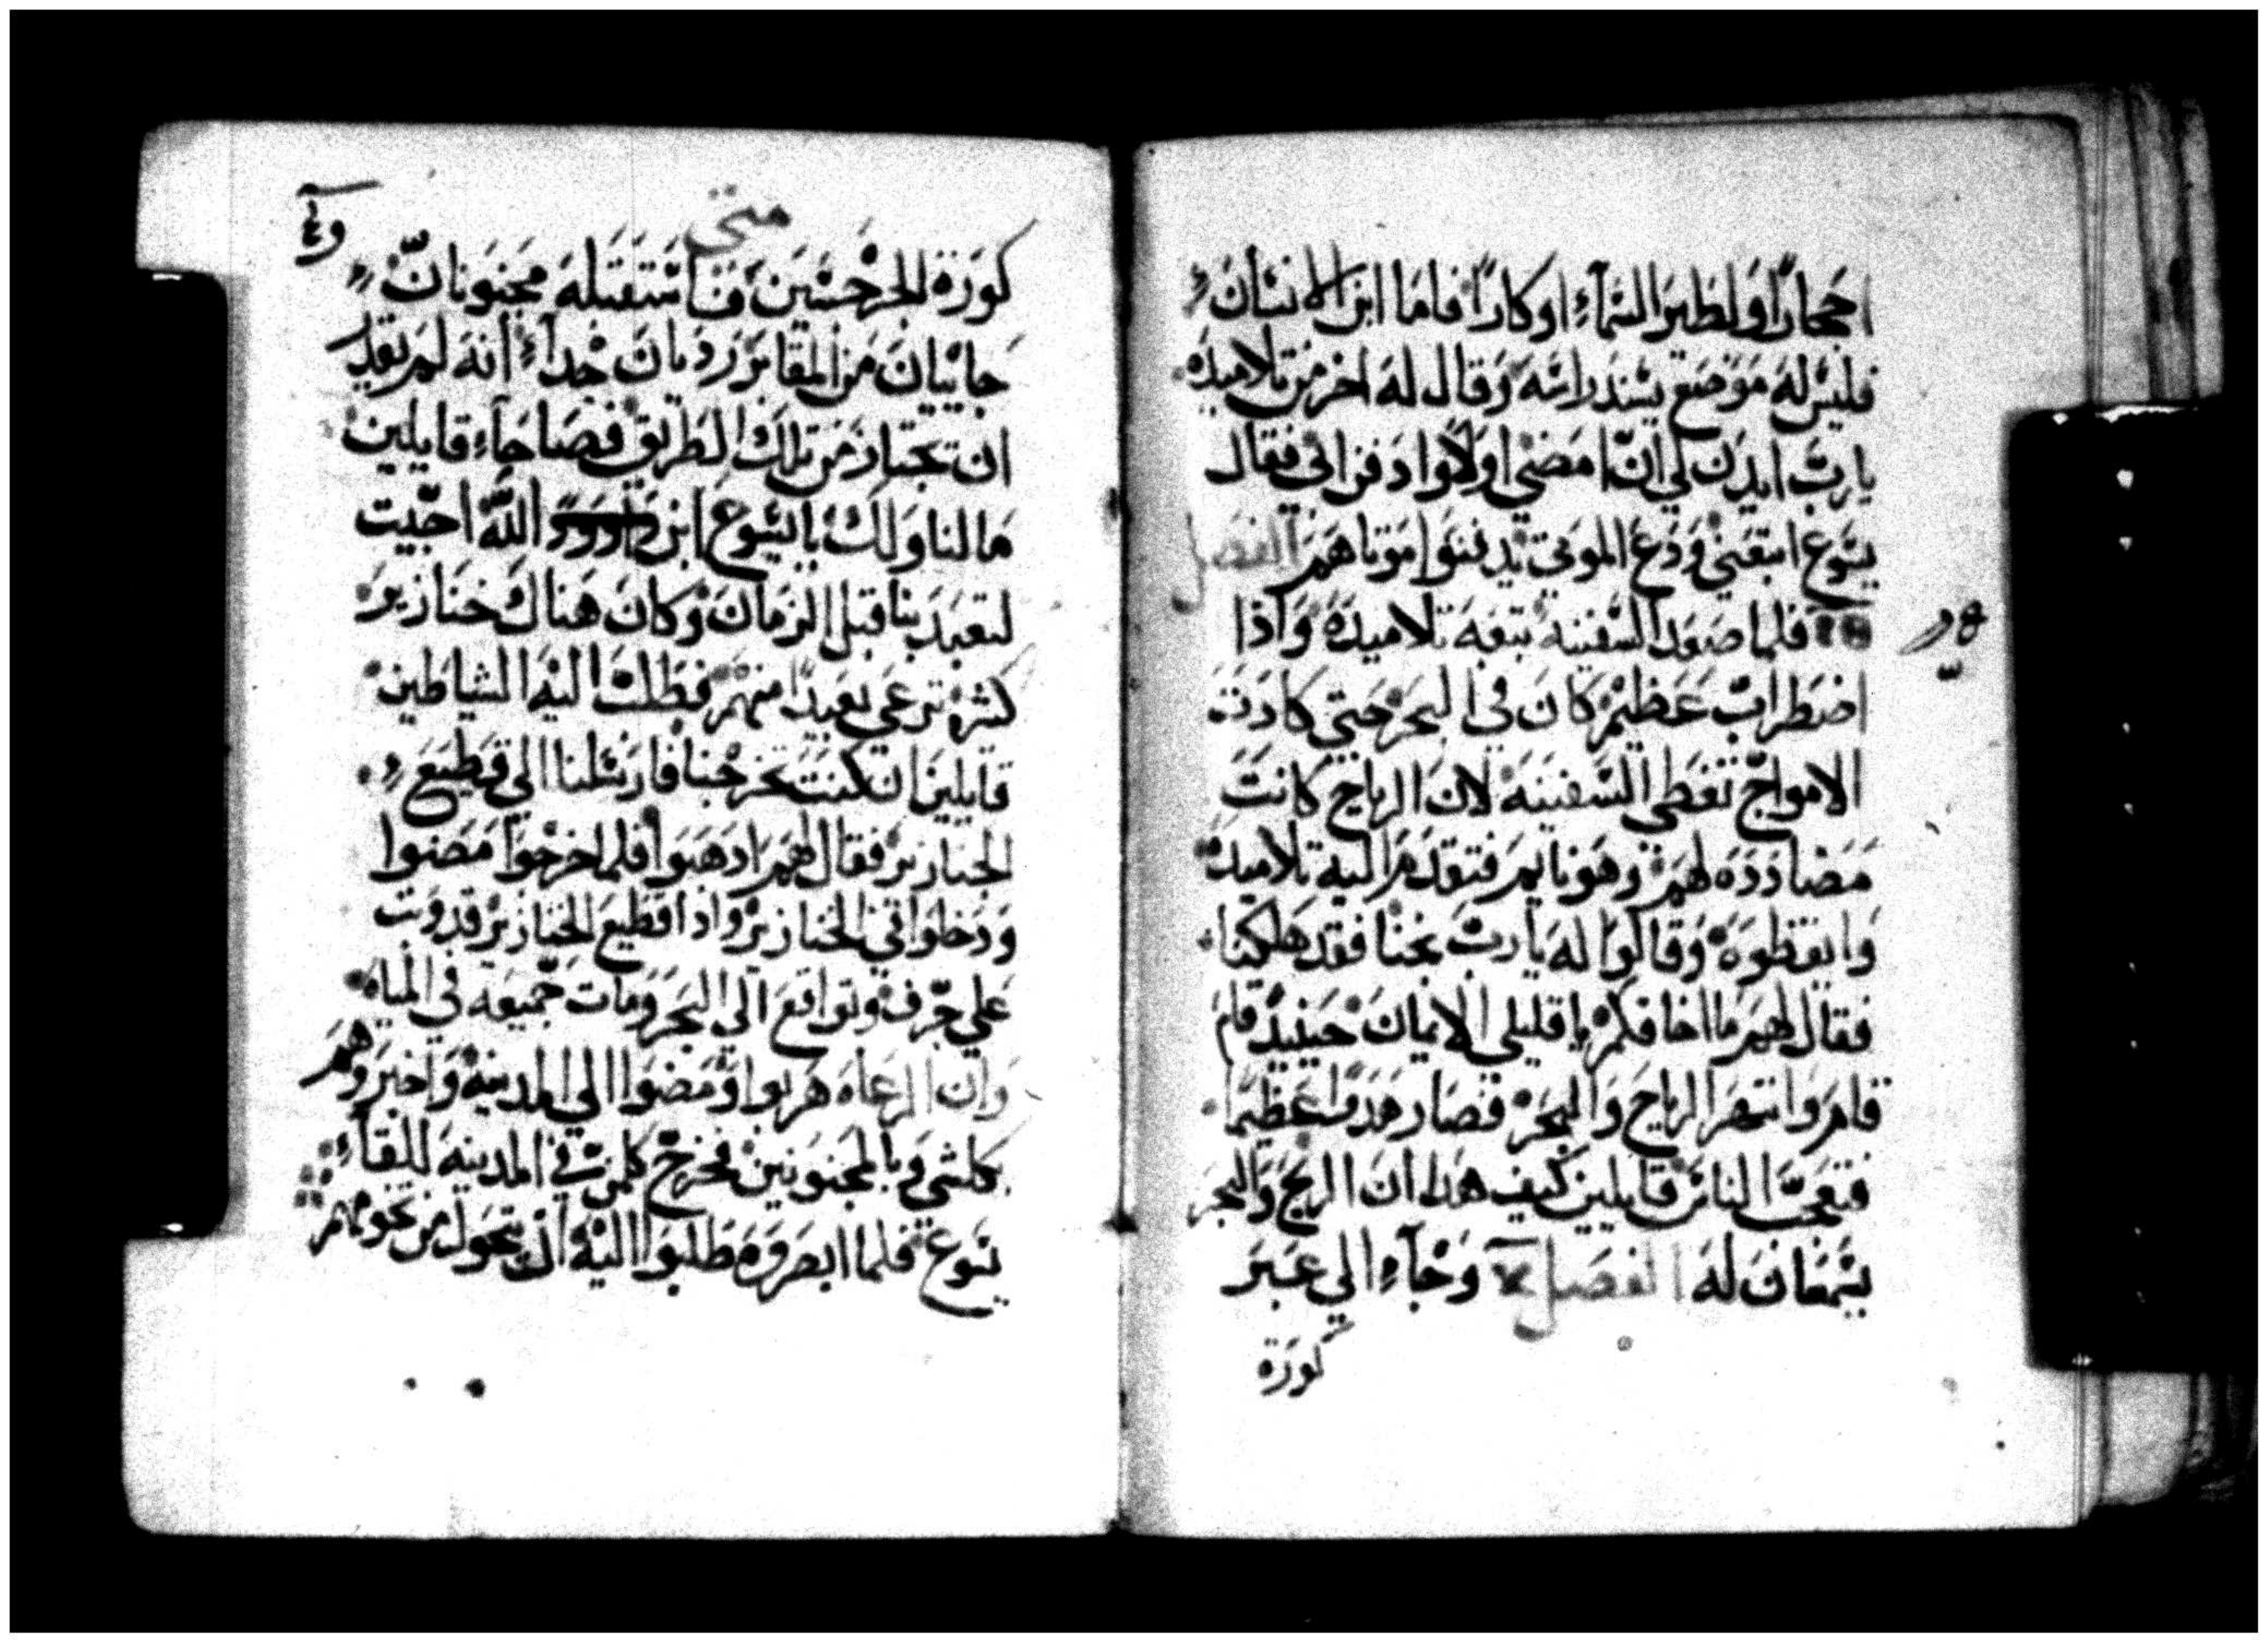 اجحارًا ولطير السمآءِ اوكارًا فاما ابن الانسان
فليس له موضع يسند راسه وقال له اخر من تلاميده
يارب ايدن لي ان امضي اولًا وادفن ابي فقال
يسوع اتبعني ودع الموتي يدفنوا موتاهم الفصل
فلما صعد السفينه تبعه تلاميده واذا
اضطراب عظيم كان في البحر حتي كادت
الامواج تغطي السفينه لان الرياح كانت
مضادده لهم وهو نايم فتقدم اليه تلاميده
وايقظوه وقالوا له يارب نجنا فقد هلكنا
فقال لهم ما اخافكم ياقليلي الايمان حينيد قام
قام وانتهر الرياح والبحر فصار هدوا عظيما
فتعجب الناس قايلين كيف هدا ان الريح والبحر
يسمعان له الفصل وجآءِ الي عبر
كورة
متي
كورة الجرجسين فاستقبله مجنونان
جاييان من المقابر رديان جدآء انه لم يقدر
ان تجتاز من تلك الطريق فصاحآءِ قايلين
مالنا ولك يايسوع ابن داوود الله اجيت
لتعبد بنا قبل الزمان وكان هناك خنازير
كثره ترعي بعيدًا منهم فطلب اليه الشياطين
قايلين ان كنت تخرجنا فارسلنا الي قطيع
الخنازير فقال لهم ادهبوا فلما خرجوا مضوا
ودخلوا في الخنازير واذا قطيع الخنازير قد وثب
علي جرف وتواقع الي البحر ومات جميعه في المياه
وان الرعاه هربوا ومضوا الي المدينه واخبروهم
بكلشي وبالمجنونين فخرج كلمن في المدينه لليقآءِ
يسوع فلما ابصروه طلبوا اليه ان يتحول من تخومهم